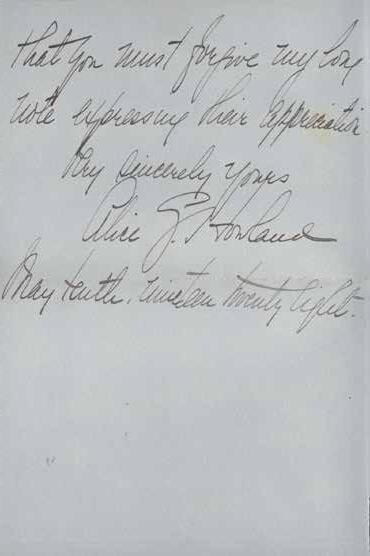 that you must forgive my long
note expressing their appreciation
Very sincerely yours
Alice G. Howland
May tenth, nineteen twenty eight.